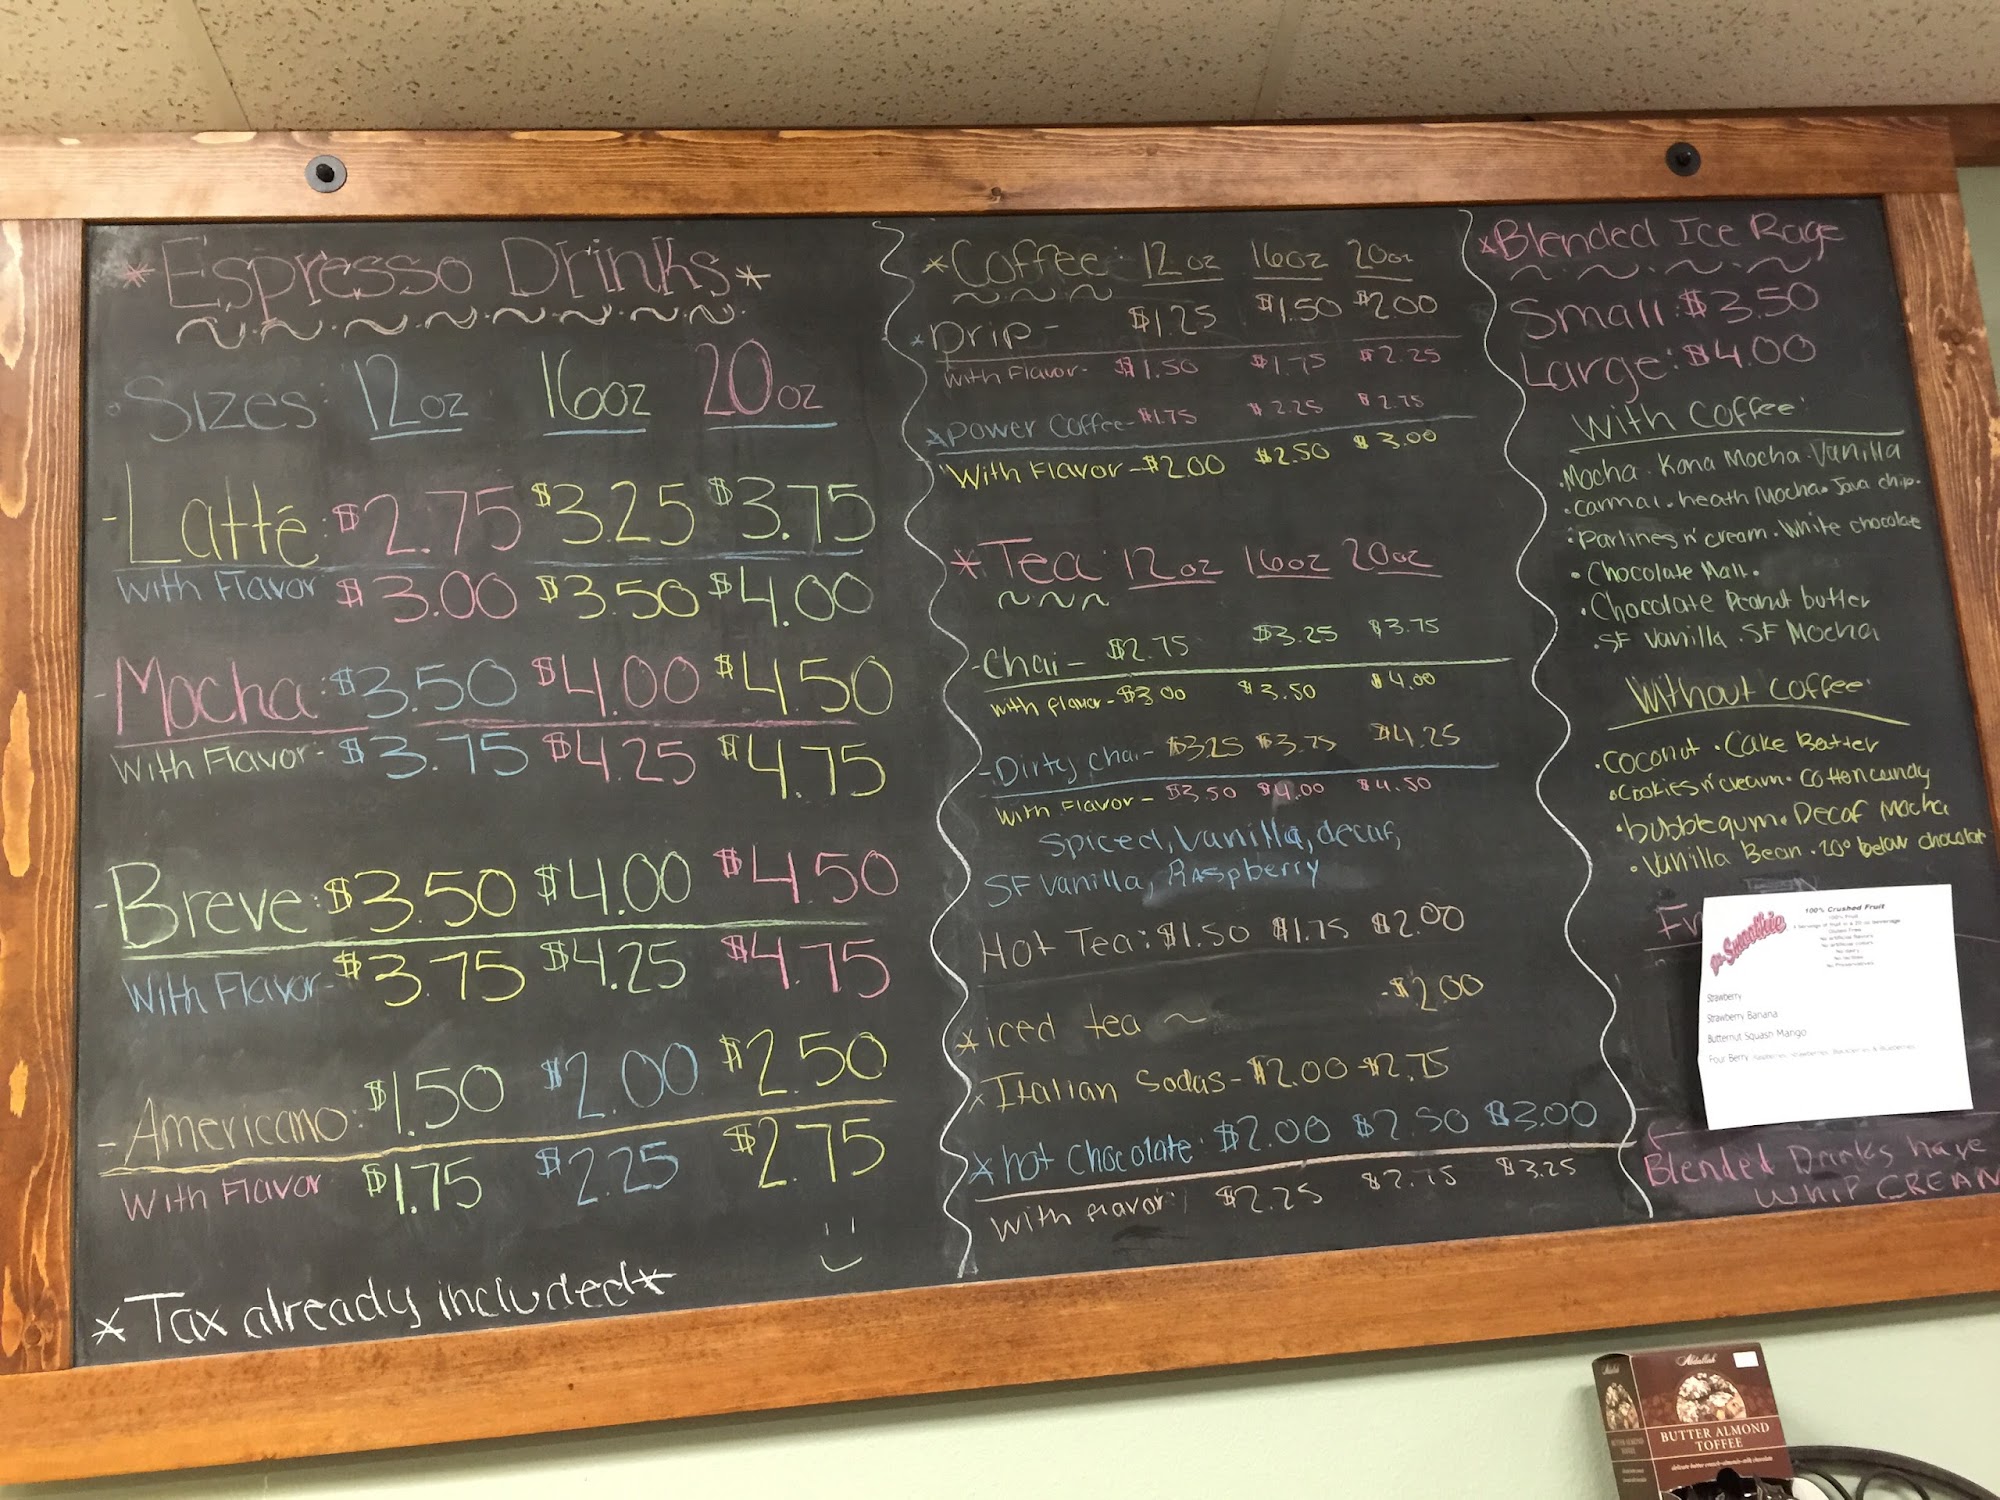 *Espresso Drinks*
Sizes: 12oz 16oz 20oz
-Latté: $2.75 $3.25 $3.75
With Flavor $3.00 $3.50 $4.00
-Mocha: $3.50 $4.00 $4.50
With Flavor- $3.75 $4.25 $4.75
-Breve: $3.50 $4.00 $4.50
With Flavor- $3.75 $4.25 $4.75
-Americano: $1.50 $2.00 $2.50
With Flavor $1.75 $2.25 $2.75
*Tax already included*
*Coffee: 12oz 16oz 20oz
*Drip- $1.25 $1.50 $2.00
With Flavor- $1.50 $1.75 $2.25
*Power Coffee- $1.75 $2.25 $2.75
With Flavor- $2.00 $2.50 $3.00
*Tea: 12oz 16oz 20oz
-Chai- $2.75 $3.25 $3.75
with flavor- $3.00 $3.50 $4.00
-Dirty chai- $3.25 $3.75 $4.25
With Flavor- $3.50 $4.00 $4.50
Spiced, Vanilla, decaf,
SF Vanilla, Raspberry
Hot Tea: $1.50 $1.75 $2.00
*iced tea ~ -$2.00
*Italian Sodas- $2.00-$2.75
*hot chocolate: $2.00 $2.50 $3.00
With flavor: $2.25 $2.75 $3.25
*Blended Ice Rage
Small: $3.50
Large: $4.00
With Coffee:
•Mocha•Kona Mocha•Vanilla
•carmal•heath Mocha•Java chip•
•Parlines n' cream•White chocolate
•Chocolate Malt•
•Chocolate Peanut butter
•SF Vanilla•SF Mocha
Without coffee:
•Coconut•Cake Batter
•Cookies n' cream•Cotton candy
•bubblegum•Decaf Mocha
•Vanilla Bean•20° below chocolate
Smoothie
100% Crushed Fruit
100% Fruit
Gluten Free
No artificial flavors
No artificial colors
No dairy
No Preservatives
Strawberry
Strawberry Banana
Butternut Squash Mango
Four Berry
Blended Drinks have
WHIP CREAM
Abdallah
BUTTER ALMOND
TOFFEE